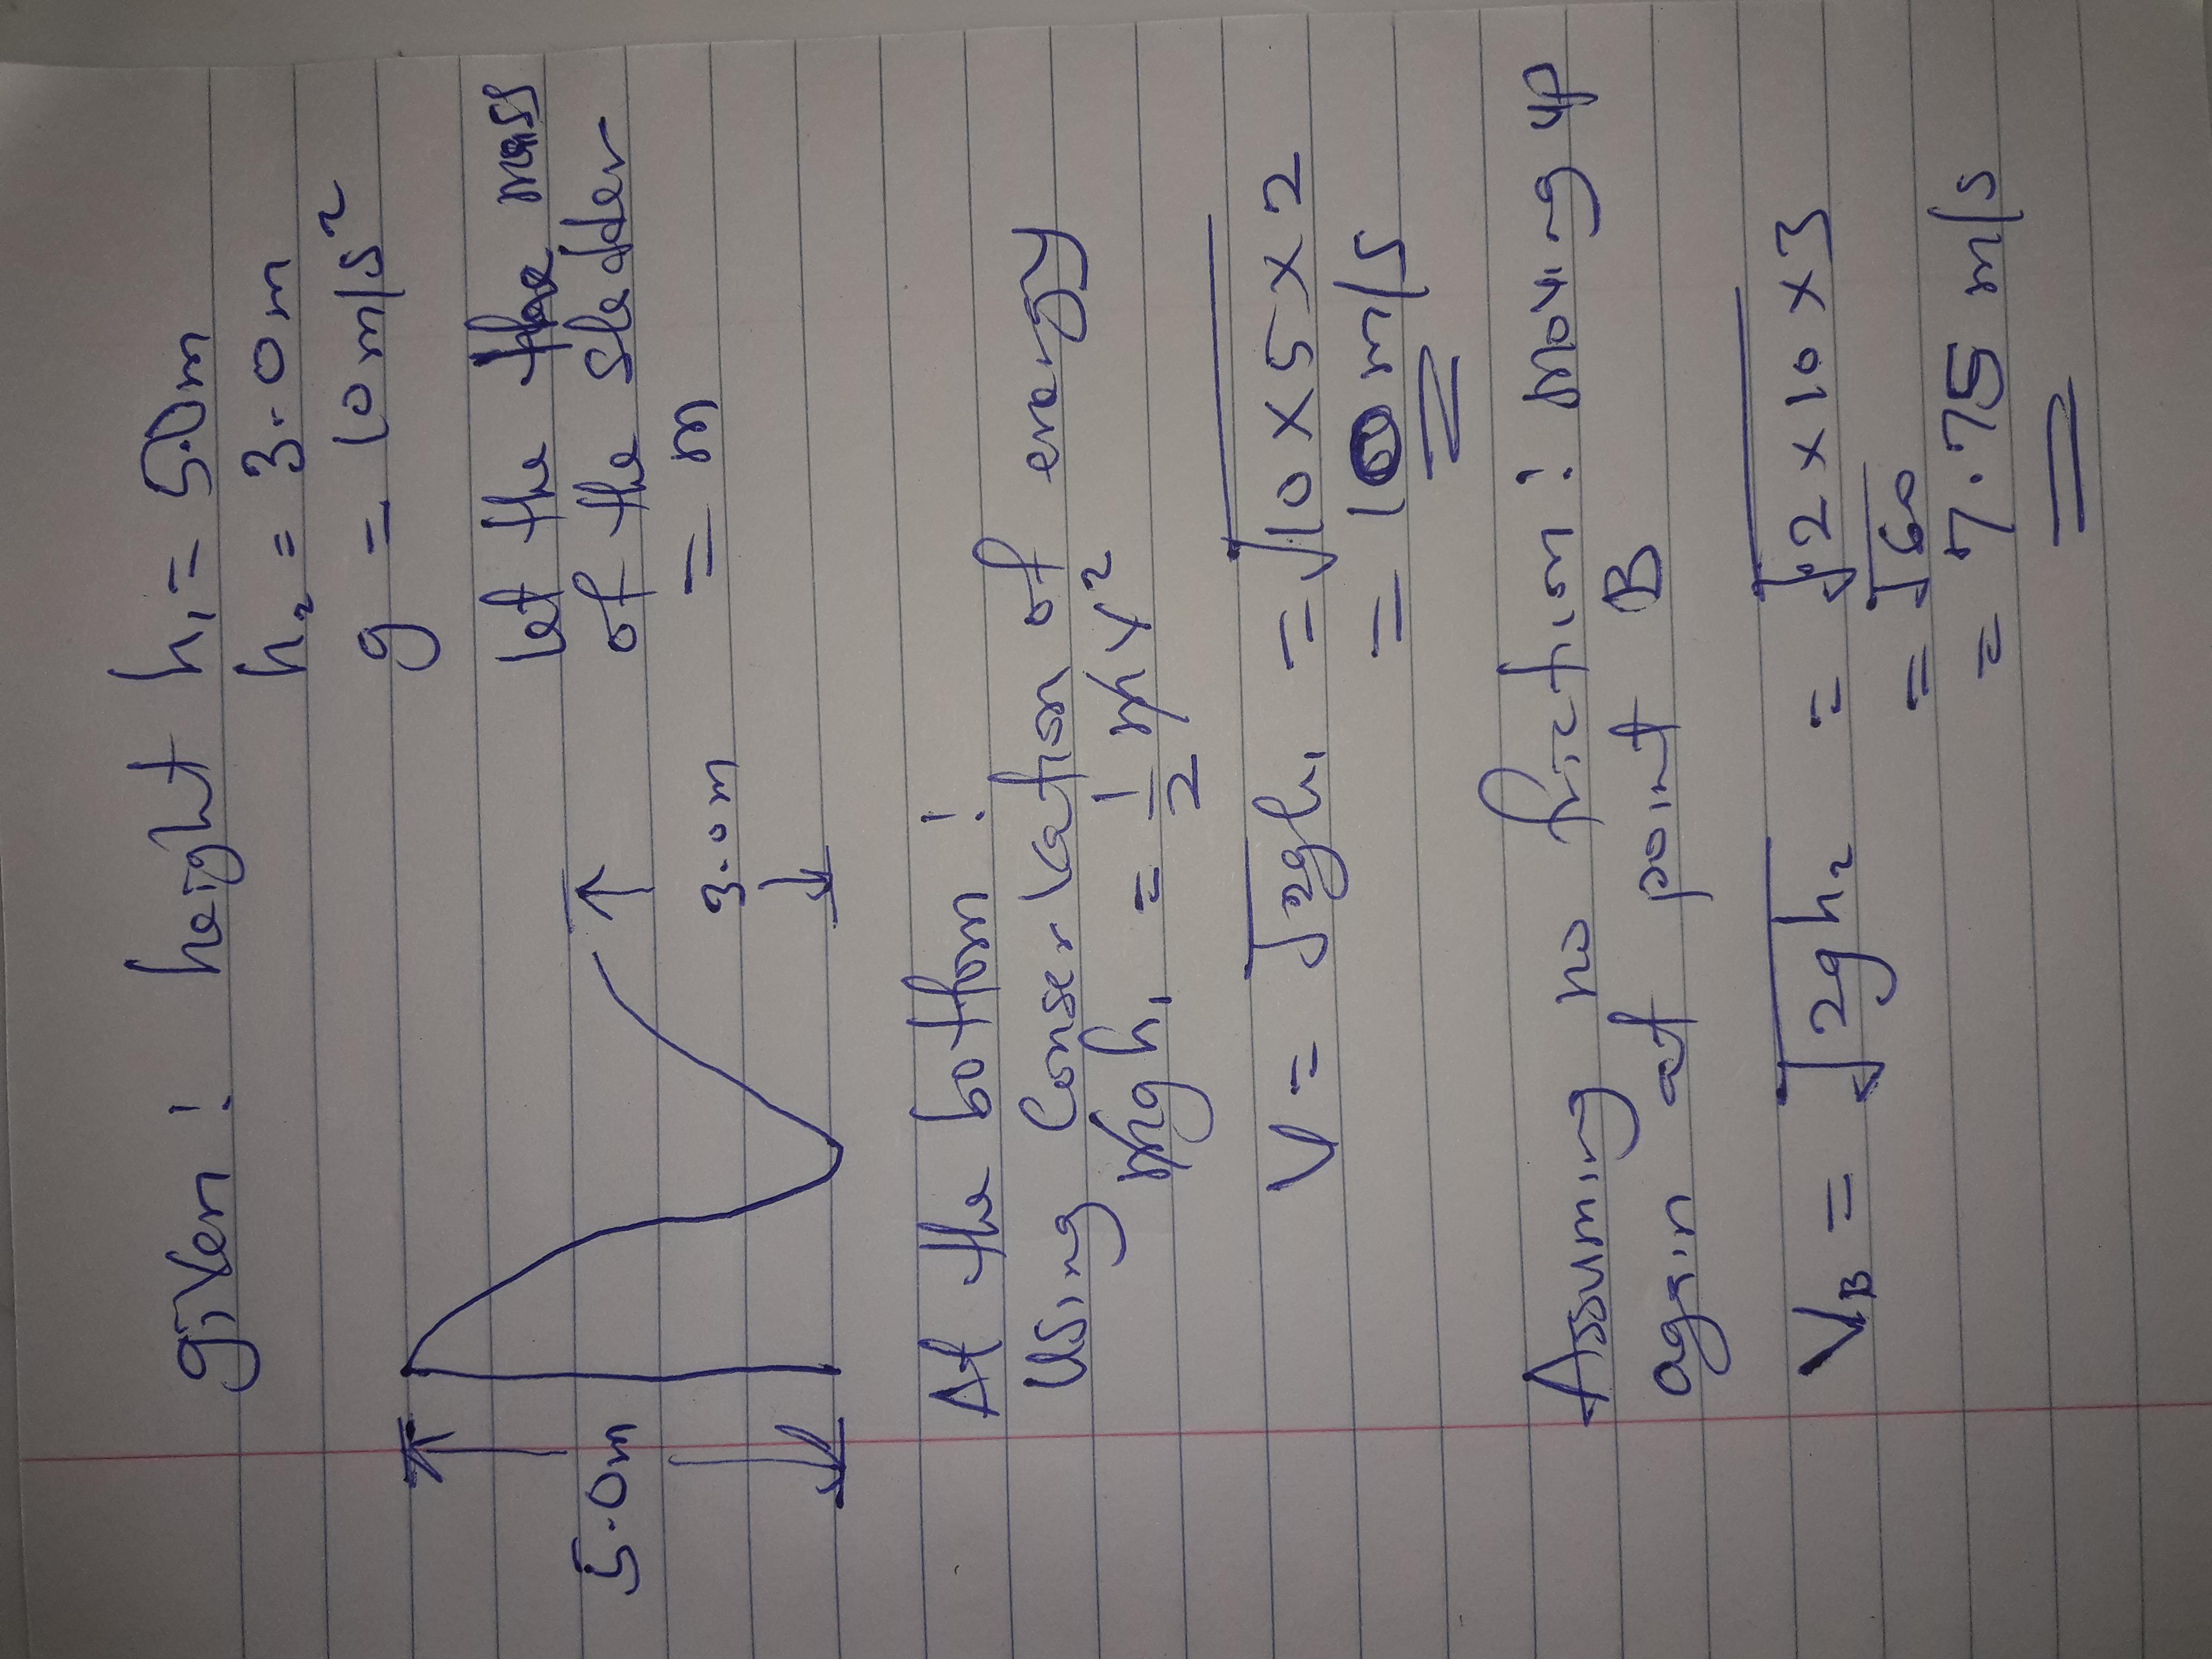 given : height h₁ = 5.0m
h₂ = 3.0m
g = 10 m/s²
let the the mass
of the sledder
= m
5.0m
3.0m
At the bottom :
Using Conservation of energy
mgh₁ = 1/2 mv²
V = √2gh₁ = √10 x 5 x 2
= 10 m/s
Assuming no friction : Moving up
again at point B
V_B = √2gh₂ = √2 x 10 x 3
= √60
= 7.75 m/s